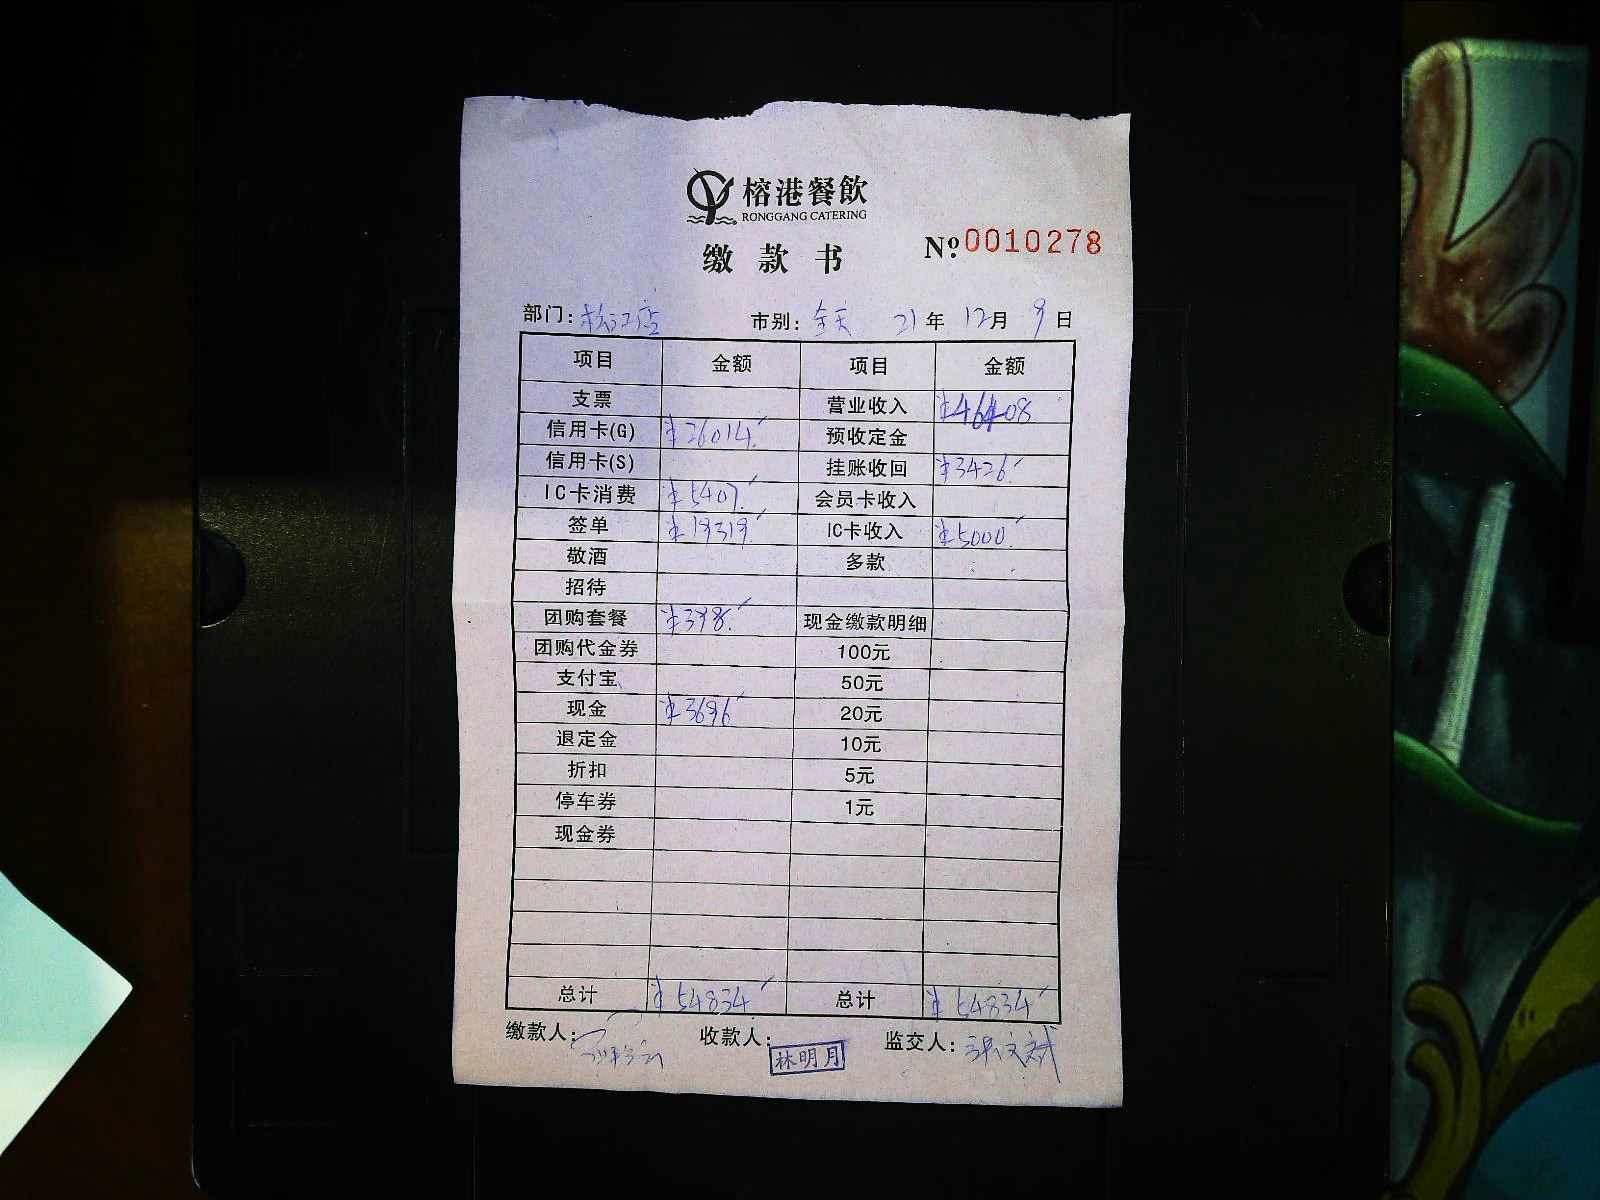 榕港餐飲
RONGGANG CATERING
缴款书 Nº 0010278
部门: 松江店 市别: 全天 21年 12月 9日
项目 金额 项目 金额
支票 营业收入 ¥46408
信用卡(G) ¥26014. 预收定金
信用卡(S) 挂账收回 ¥3426.
IC卡消费 ¥5407. 会员卡收入
签单 ¥19319 IC卡收入 ¥5000.
敬酒 多款
招待
团购套餐 ¥398. 现金缴款明细
团购代金券 100元
支付宝 50元
现金 ¥3696 20元
退定金 10元
折扣 5元
停车券 1元
现金券
总计 ¥54834. 总计 ¥54834.
缴款人: 收款人: 林明月 监交人: 张文斌